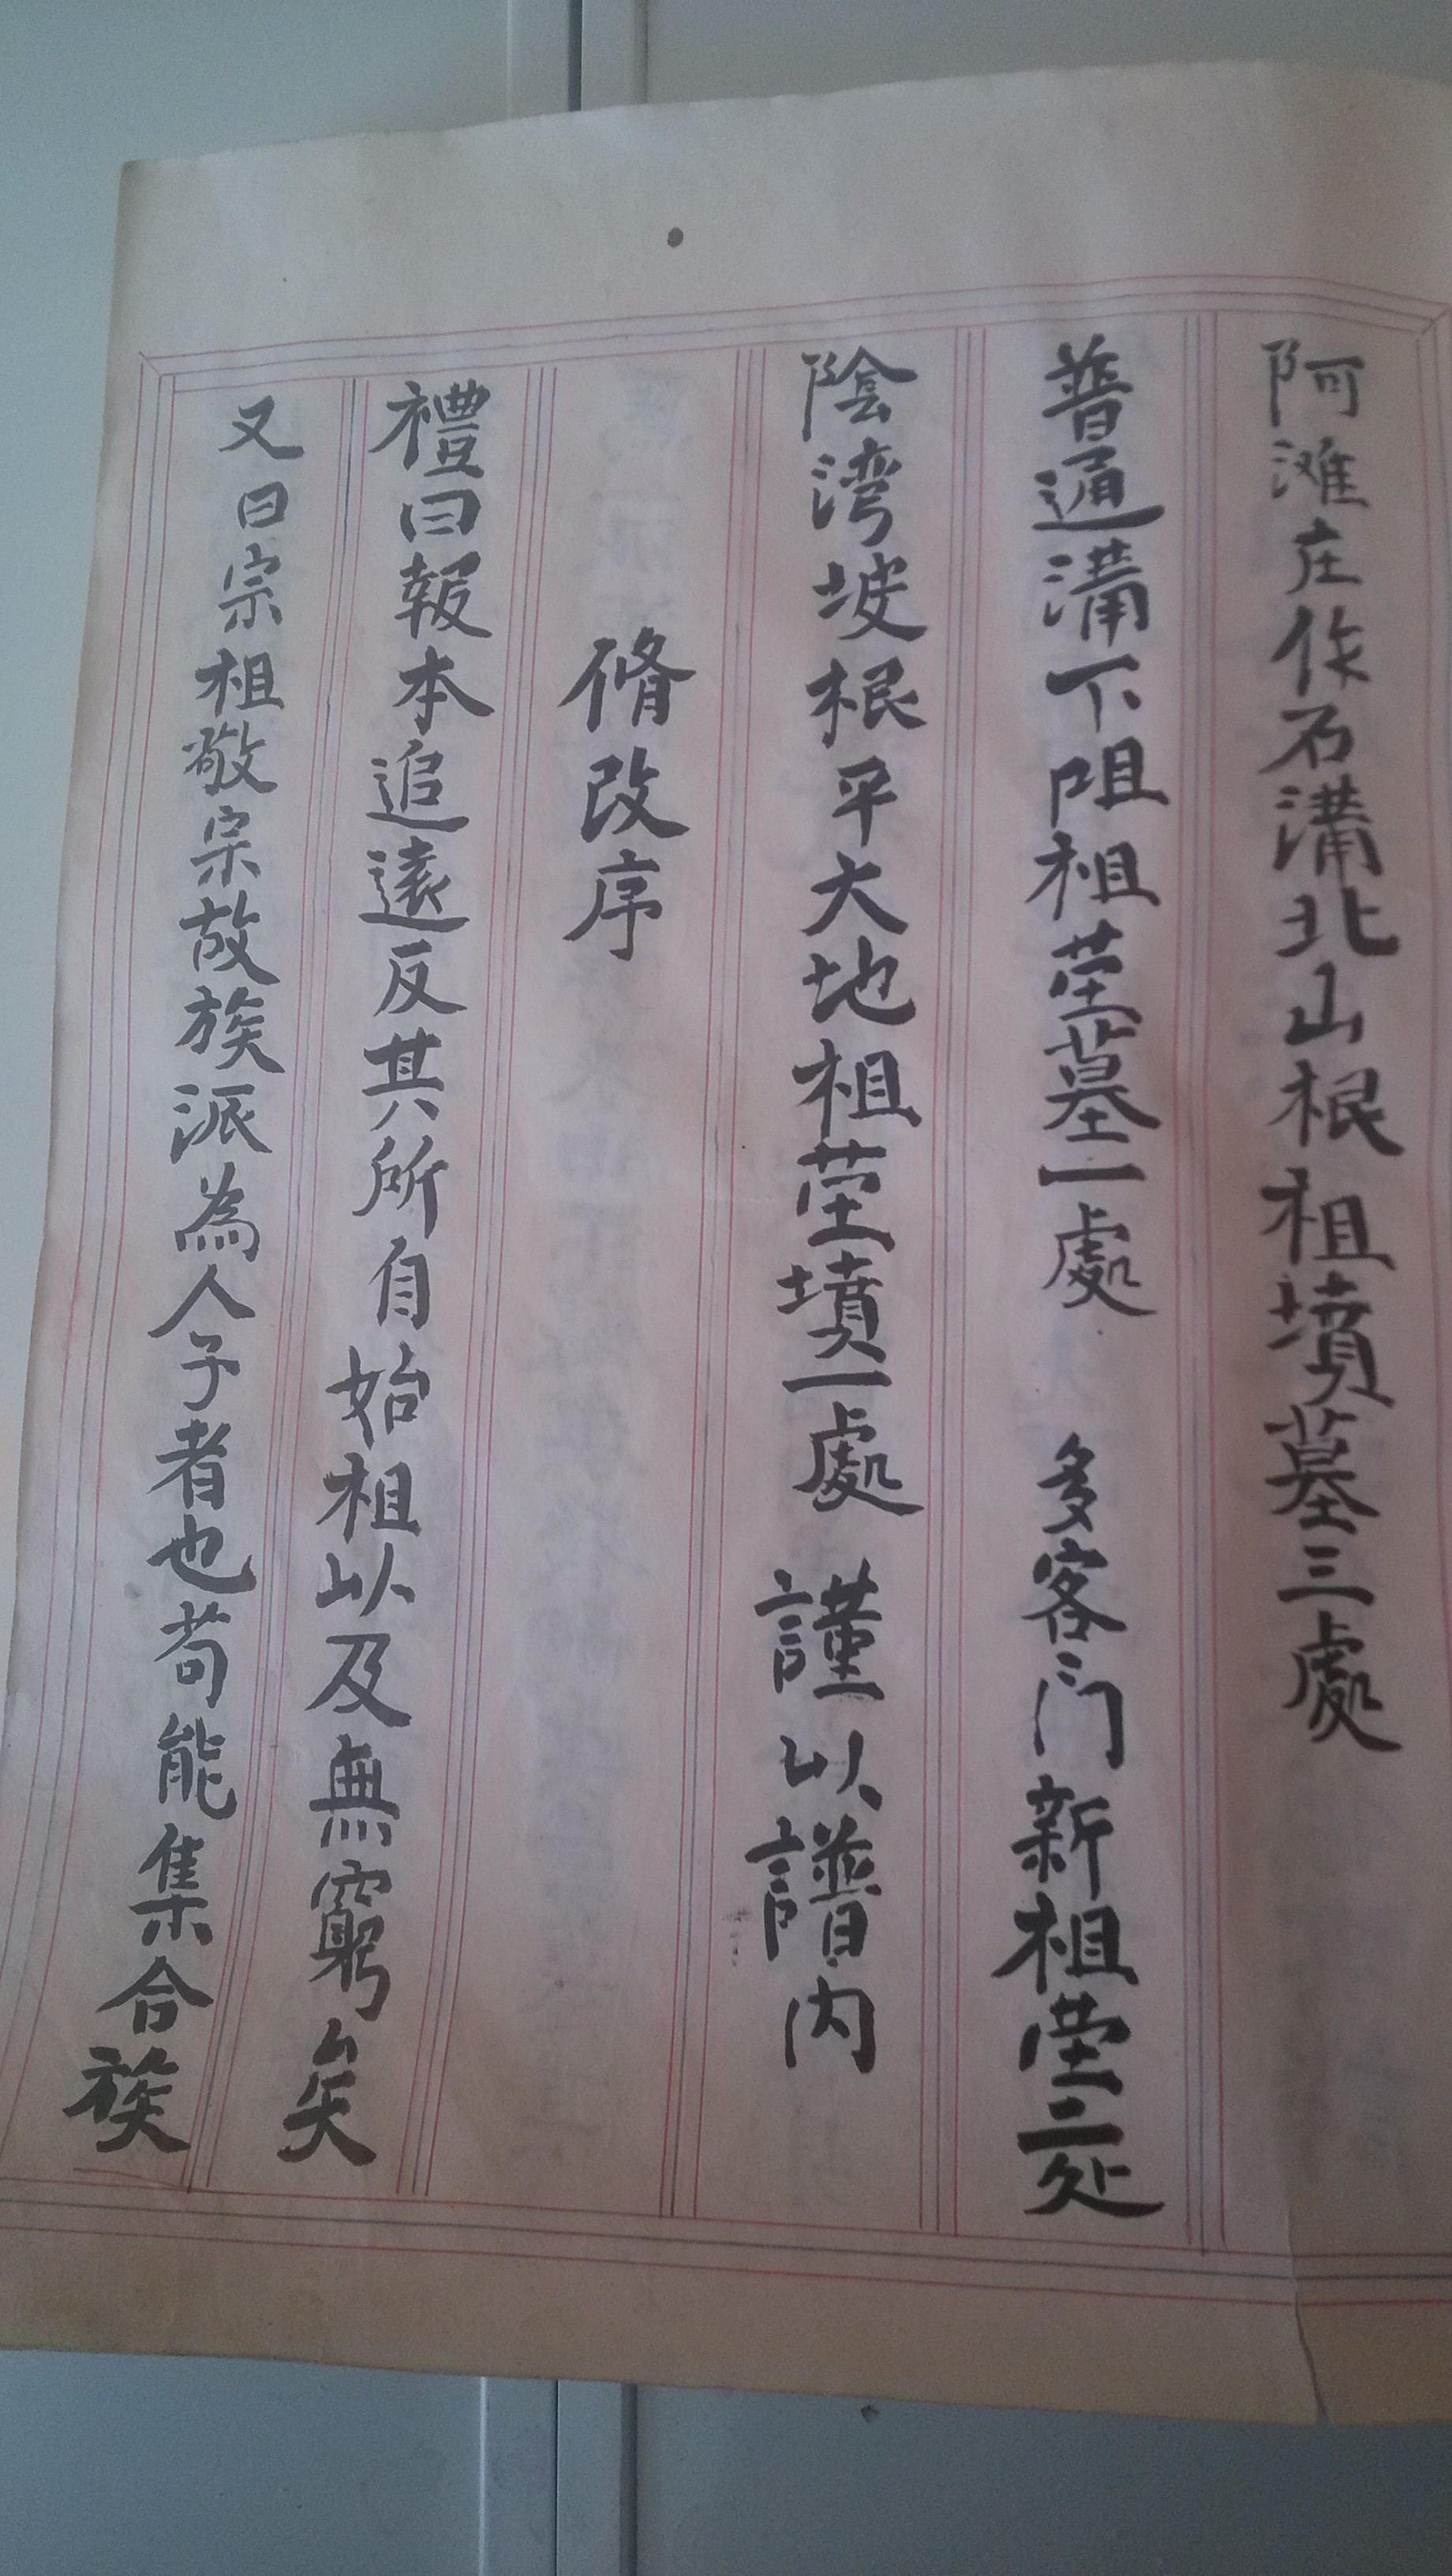 阿滩庄作石溝北山根祖墳墓三處
普通溝下阻祖茔墓一處 多客门新祖茔二处
陰湾坡根平大地祖茔墳一處 謹以譜内
脩改序
禮曰報本追遠反其所自始祖以及無窮矣
又曰宗祖敬宗故族派為人子者也苟能集合族